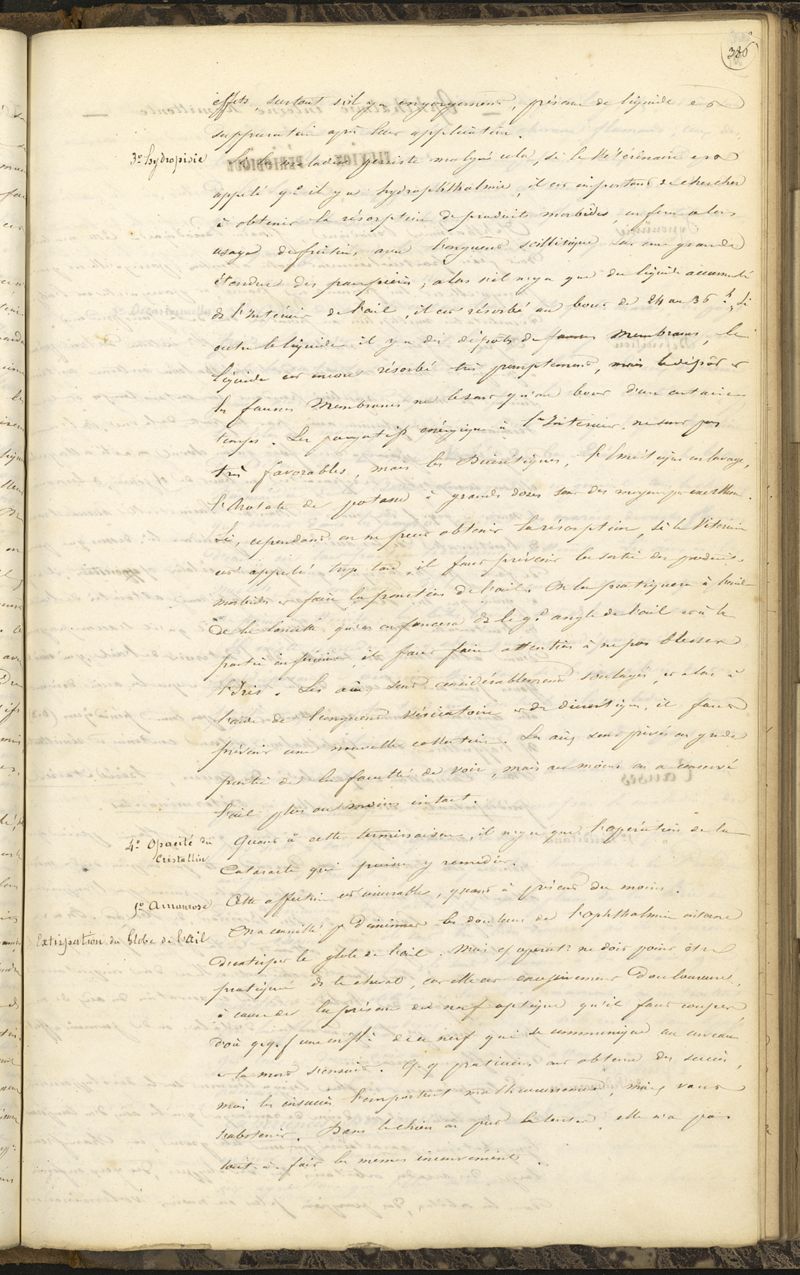 386
effets, surtout s'il y a engorgement, présence de liquide et
suppuration après leur application.
3° hydropisie
Si la maladie persiste malgré cela, si le Vétérinaire est
appelé qd il y a hydrophthalmie, il est important de chercher
à obtenir la résorption de produits morbides, on fera alors
usage de frictions avec l'onguent scillitique sur une grande
étendue des paupières, alors s'il n'y a que du liquide accumulé
ds l'intérieur de l'œil, il est résorbé au bout de 24 ou 36 h, Si
outre le liquide il y a des dépôts de fausses Membranes, le
liquide est encore résorbé très promptement, mais le dépôt et
les fausses Membranes ne le sont qu'au bout d'un certain
temps. Les purgatifs énergiques à l'Intérieur, ne sont pas
très favorables, mais les Diurétiques, l'Emétique en lavage,
l'Azotate de potasse à grandes doses sont des moyens par excellence.
Si, cependant on ne peut obtenir la résorption, si le Vétérinaire
est appelé trop tard, il faut prévoir la sortie des produits
morbides et faire la ponction de l'œil. On la pratiquera à l'aide
de la lancette, qu'on enfoncera ds le gd angle de l'œil et à la
partie inférieure il faut faire attention à ne pas blesser
l'Iris. Les aux sont considérablement soulagés, et alors à
l'aide de l'onguent Vésicatoire et de diurétiques, il faut
prévoir une nouvelle collection. Les aux sont privés en gnde
partie de la faculté de voir, mais au moins on a conservé
l'œil plus ou moins intact.
4° Opacité du
Cristallin
Quant à cette terminaison, il n'y a que l'opération de la
Cataracte qui puisse y remédier.
5° Amaurose
Cette affection est incurable, quant à présent du moins.
Extirpation du Globe de l'œil
On a conseillé pr diminuer les douleurs de l'ophthalmie interne
d'extirper le globe de l'œil. Mais cette opérat: ne doit point être
pratiquée ds le cheval, car elle est excessivement douloureuse,
à cause de la présence du nerf optique qu'il faut couper
d'où qqf une inflt: de ce nerf qui se communique au cerveau
et la mort s'ensuit. Qq praticiens ont obtenu des succès,
mais les insuccès l'emportent malheureusement, mieux vaut
s'abstenir. Dans le chien on peut la tenter, elle n'a pas
tout à fait les mêmes inconvénients.